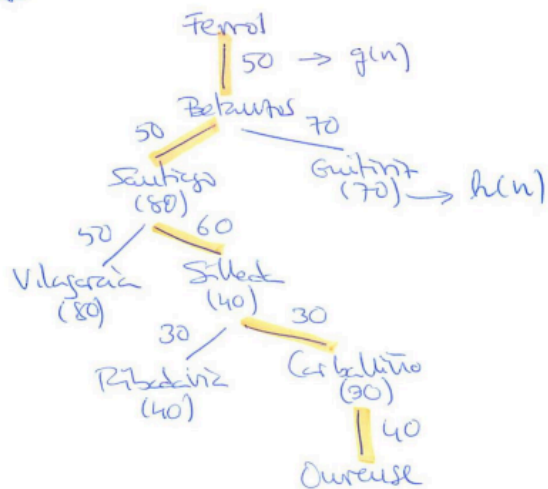 Ferrol
50 → g(n)
Betanzos
50 70
Santiago
(80)
Guitiriz
(70) → h(n)
50 60
Vilagarcía
(80)
Silleda
(40)
30 30
Ribadavia
(40)
Carballiño
(30)
40
Ourense